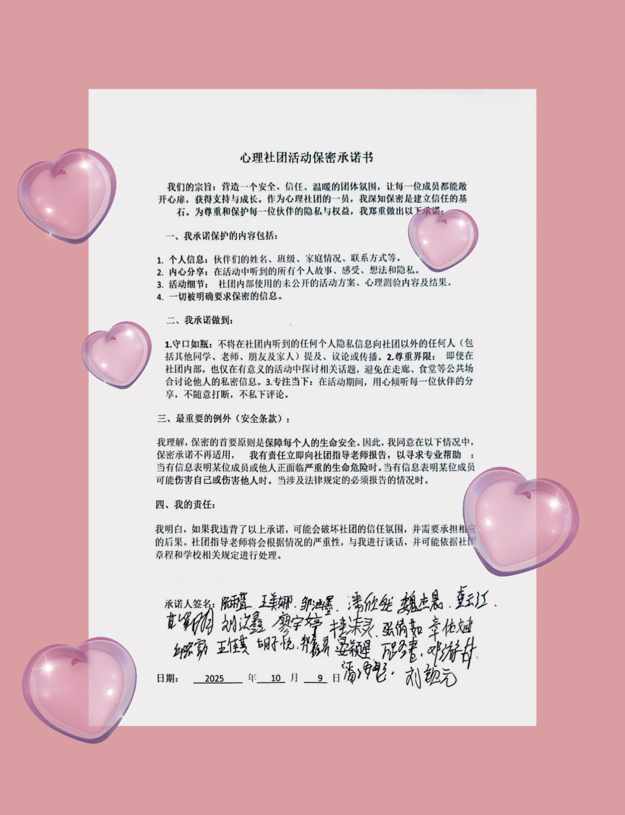 心理社团活动保密承诺书
我们的宗旨：营造一个安全、信任、温暖的团体氛围，让每一位成员都能敞
开心扉，获得支持与成长。作为心理社团的一员，我深知保密是建立信任的基
石。为尊重和保护每一位伙伴的隐私与权益，我郑重做出以下承诺：
一、我承诺保护的内容包括：
1. 个人信息：伙伴们的姓名、班级、家庭情况、联系方式等。
2. 内心分享：在活动中听到的所有个人故事、感受、想法和隐私。
3. 活动细节： 社团内部使用的未公开的活动方案、心理测验内容及结果。
4. 一切被明确要求保密的信息。
二、我承诺做到：
1.守口如瓶：不将在社团内听到的任何个人隐私信息向社团以外的任何人（包
括其他同学、老师、朋友及家人）提及、议论或传播。2.尊重界限： 即使在
社团内部，也仅在有意义的活动中探讨相关话题，避免在走廊、食堂等公共场
合讨论他人的私密信息。3.专注当下：在活动期间，用心倾听每一位伙伴的分
享，不随意打断，不私下评论。
三、最重要的例外（安全条款）：
我理解，保密的首要原则是保障每个人的生命安全。因此，我同意在以下情况中，
保密承诺不再适用， 我有责任立即向社团指导老师报告，以寻求专业帮助 ：
当有信息表明某位成员或他人正面临严重的生命危险时。当有信息表明某位成员
可能伤害自己或伤害他人时。当涉及法律规定的必须报告的情况时。
四、我的责任：
我明白，如果我违背了以上承诺，可能会破坏社团的信任氛围，并需要承担相应
的后果。社团指导老师将会根据情况的严重性，与我进行谈话，并可能依据社团
章程和学校相关规定进行处理。
承诺人签名： 王美娜 潘欣然
廖宇婷
王佳其 胡子悦
刘凯元
日期： 2025 年 10 月 9 日